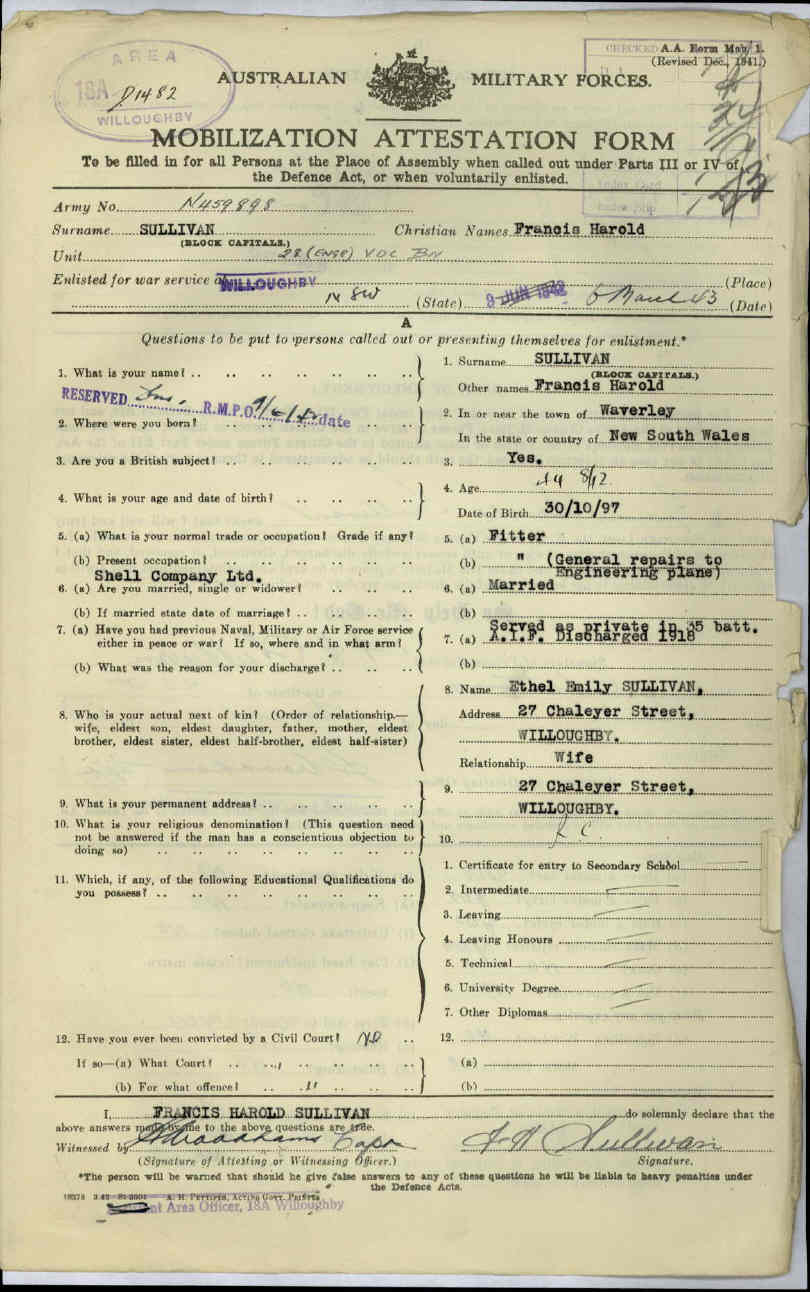 AREA
18A
D1482
WILLOUGHBY
CHECKED
A.A. Form Mob. 1.
(Revised Dec., 1941.)
AUSTRALIAN MILITARY FORCES.
MOBILIZATION ATTESTATION FORM
To be filled in for all Persons at the Place of Assembly when called out under Parts III or IV of
the Defence Act, or when voluntarily enlisted.
Army No. N459898
Surname SULLIVAN Christian Names Francis Harold
(BLOCK CAPITALS.)
Unit 28 (ENGR) VDC BN
Enlisted for war service at WILLOUGHBY (Place)
N SW (State) 9 JUN 1942 6 March 43 (Date)
A
Questions to be put to persons called out or presenting themselves for enlistment.*
1. What is your name? 1. Surname SULLIVAN
(BLOCK CAPITALS.)
Other names Francis Harold
RESERVED R.M.P.O. 9/6/42 date
2. Where were you born? 2. In or near the town of Waverley
In the state or country of New South Wales
3. Are you a British subject? 3. Yes.
4. What is your age and date of birth? 4. Age 44 8/12
Date of Birth 30/10/97
5. (a) What is your normal trade or occupation? Grade if any? 5. (a) Fitter
(b) Present occupation? (b) " (General repairs to
Shell Company Ltd. Engineering plane)
6. (a) Are you married, single or widower? 6. (a) Married
(b) If married state date of marriage? (b)
7. (a) Have you had previous Naval, Military or Air Force service
either in peace or war? If so, where and in what arm?
7. (a) Served as private in 35 batt.
A.I.F. Discharged 1918
(b) What was the reason for your discharge? (b)
8. Who is your actual next of kin? (Order of relationship.—
wife, eldest son, eldest daughter, father, mother, eldest
brother, eldest sister, eldest half-brother, eldest half-sister)
8. Name Ethel Emily SULLIVAN,
Address 27 Chaleyer Street,
WILLOUGHBY.
Relationship Wife
9. What is your permanent address? 9. 27 Chaleyer Street,
WILLOUGHBY.
10. What is your religious denomination? (This question need
not be answered if the man has a conscientious objection to
doing so)
10. R C.
11. Which, if any, of the following Educational Qualifications do
you possess?
1. Certificate for entry to Secondary School
2. Intermediate
3. Leaving
4. Leaving Honours
5. Technical
6. University Degree
7. Other Diplomas
12. Have you ever been convicted by a Civil Court? NO 12.
If so—(a) What Court? (a)
(b) For what offence? " (b)
I, FRANCIS HAROLD SULLIVAN do solemnly declare that the
above answers made by me to the above questions are true.
Witnessed by Capt F H Sullivan
(Signature of Attesting or Witnessing Officer.) Signature.
*The person will be warned that should he give false answers to any of these questions he will be liable to heavy penalties under
the Defence Acts.
A. H. Pettifer, Acting Govt. Printer
Area Officer, 18A Willoughby